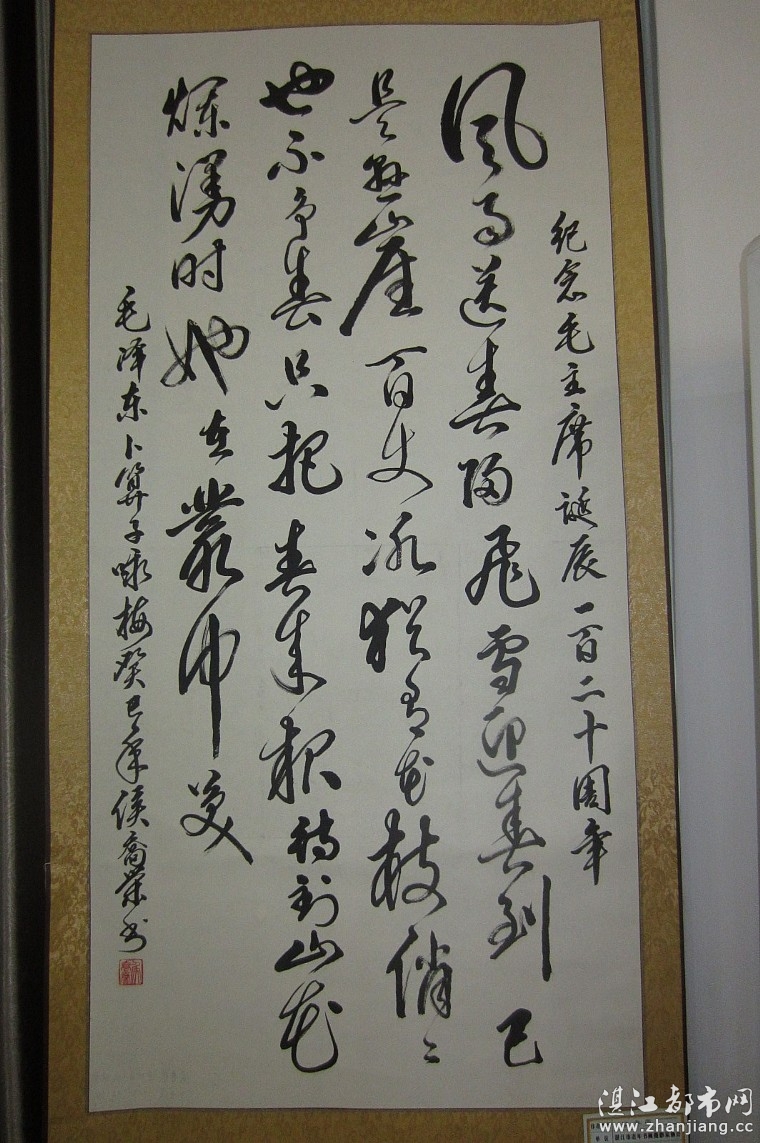 纪念毛主席诞辰一百二十周年
风雨送春归飞雪迎春到已
是悬崖百丈冰犹有花枝俏〻
也不争春只把春来报待到山花
烂漫时她在丛中笑
毛泽东卜算子咏梅癸巳年侯裔荣书
湛江都市网
www.zhanjiang.cc